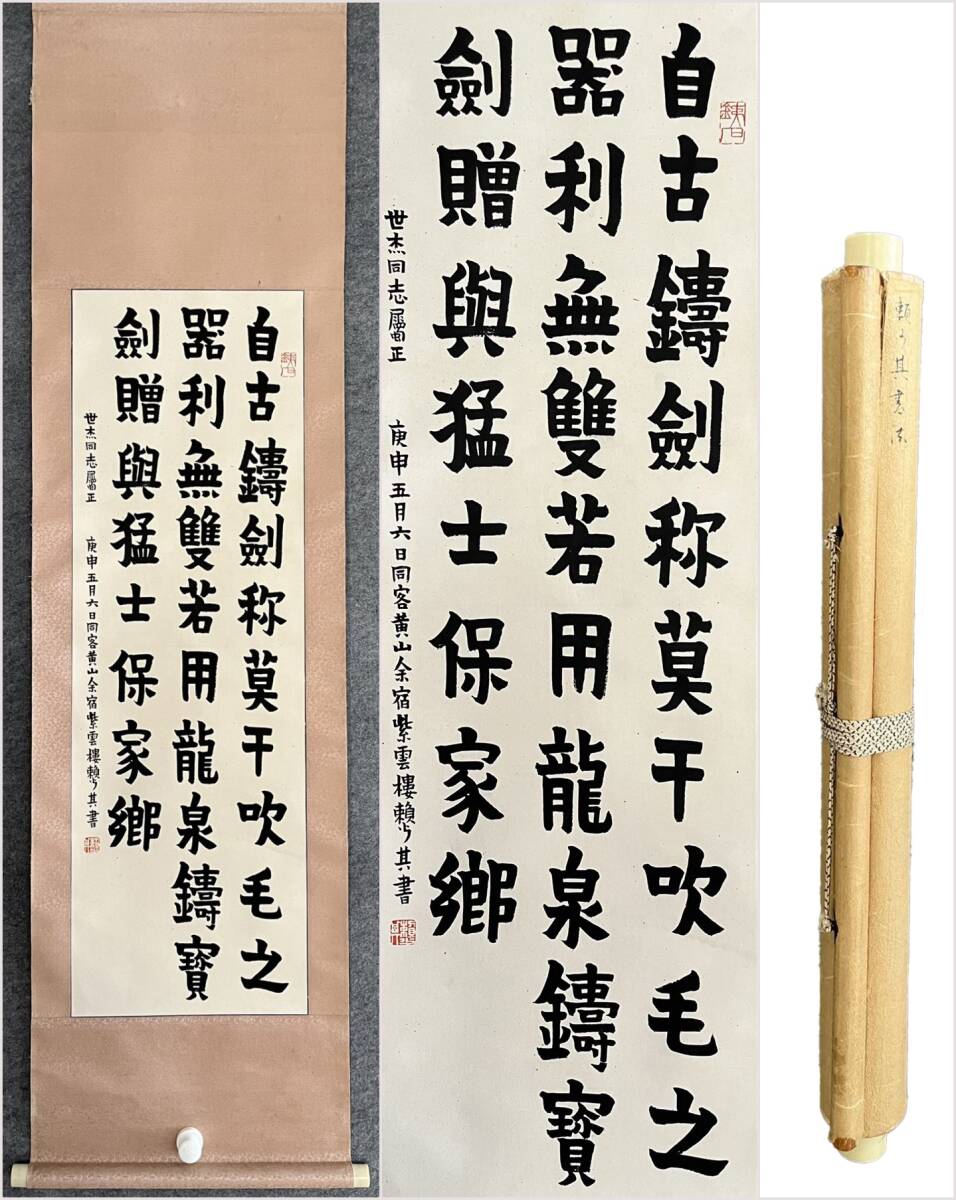 自古鑄劍称莫干吹毛之
器利無雙若用龍泉鑄寳
劍贈與猛士保家鄉
世杰同志屬正 庚申五月六日同客黄山余宿紫雲樓賴少其書
自古鑄劍称莫干吹毛之
器利無雙若用龍泉鑄寳
劍贈與猛士保家鄉
世杰同志屬正 庚申五月六日同客黄山余宿紫雲樓賴少其書
賴少其書法